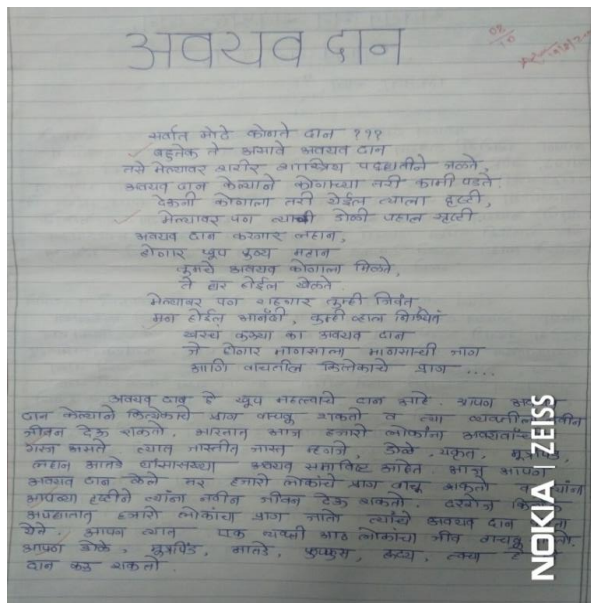 अवयव दान
सर्वात मोठे कोणते दान ???
बहुतेक ते असावे अवयव दान
तसे मेल्यावर शरीर पद्धतीने जळते,
अवयव दान केल्याने कोणाच्या तरी कामी पडते.
देऊनी कोणाला तरी येईल त्याला दृष्टी,
मेल्यावर पण त्याची डोळी पहाल सृष्टी.
अवयव दान करणार लहान,
होणार खूप पुण्य महान
तुमचे अवयव कोणाला मिळते,
ते होईल खेळते.
मेल्यावर पण राहणार तुम्ही जिवंत,
मन होईल आनंदी, तुम्ही व्हाल निश्चिंत
खरचं कळ्या का अवयव दान
जे होणार माणसाला माणसाची जाण
आणि वाचतील कित्येकाचे प्राण ....
अवयव दान हे खूप महत्वाचे दान आहे. आपण अवयव
दान केल्याने कित्येकाचे प्राण वाचवू शकतो व त्या व्यक्तीला नवीन
जीवन देऊ शकतो. भारतात आज हजारो लोकांना अवयवांची
गरज असते त्यात जास्तीत जास्त म्हणजे, डोळे, यकृत, मूत्रपिंड,
लहान आतडे यांसारख्या अवयव समाविष्ट आहेत. आपण
अवयव दान केले तर हजारो लोकांचे प्राण वाचू शकतो व
आपल्या दृष्टीने त्यांना नवीन जीवन देऊ शकतो. दररोज
अपघातात हजारो लोकांचा प्राण जातो त्यांचे अवयव दान
येते. आपण त्यात एक व्यक्ती आठ लोकांचा जीव वाचवू शकतो.
आपण डोळे, मूत्रपिंड, आतडे, फुफ्फुस, हृदय, त्वचा हे
दान करू शकतो.
NOKIA | ZEISS